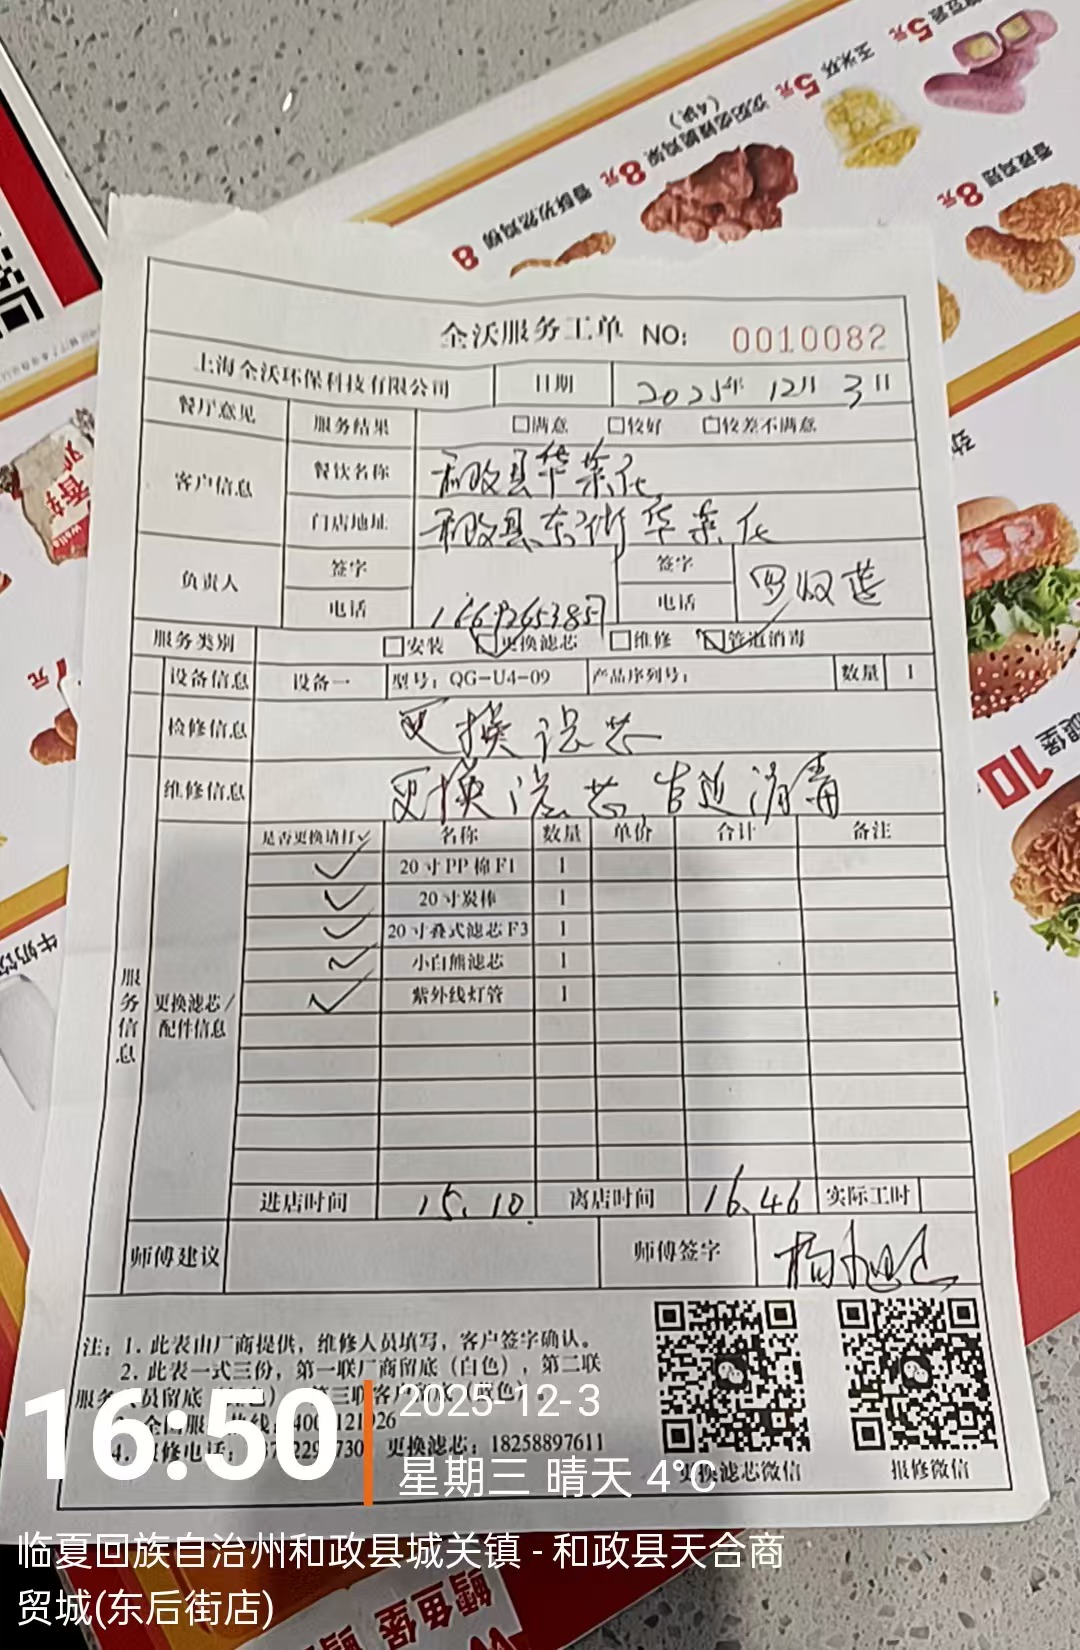 香薯豆酱5元
玉米杯5元
8元
(4块)
香酥孜然鸡柳 8
香香鸡翅
8元
全沃服务工单 NO: 0010082
上海全沃环保科技有限公司 日期 2025年 12月 3日
餐厅意见 服务结果 □满意 □较好 □较差不满意
客户信息 餐饮名称 和政县华莱仕
门店地址 和政县东街华莱仕
负责人 签字 签字
电话 电话
服务类别 □安装 ☑更换滤芯 □维修 ☑管道消毒
设备信息 设备一 型号: QG-U4-09 产品序列号: 数量 1
检修信息 更换滤芯
维修信息 更换滤芯 管道消毒
是否更换请打✓ 名称 数量 单价 合计 备注
✓ 20寸PP棉F1 1
✓ 20寸炭棒 1
✓ 20寸叠式滤芯F3 1
✓ 小白熊滤芯 1
✓ 紫外线灯管 1
服务信息
更换滤芯/
配件信息
进店时间 15.10 离店时间 16.46 实际工时
师傅建议 师傅签字
注: 1. 此表由厂商提供, 维修人员填写, 客户签字确认。
2. 此表一式三份, 第一联厂商留底 (白色), 第二联
更换滤芯: 18258897611
更换滤芯微信 报修微信
10
16:50
2025-12-3
星期三 晴天 4°C
临夏回族自治州和政县城关镇 - 和政县天合商
贸城(东后街店)
鳕鱼堡